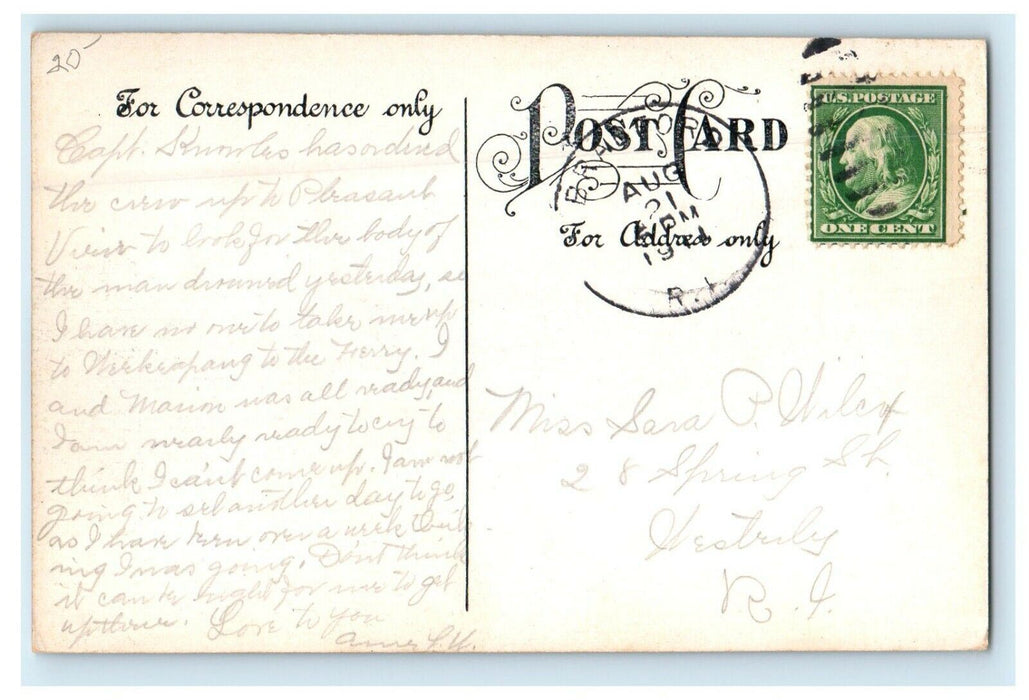 20
For Correspondence only
Capt. Knowles has ordered
the crew up to Pleasant
View to look for the body of
the man drowned yesterday, so
I have no one to take me up
to Weekapaug to the Ferry. I
and Marion was all ready, and
I am nearly ready to cry to
think I can't come up. I am not
going to set another day to go,
as I have been over a week think
ing I was going. Don't think
it can be right for me to get
up there. Love to you
POST CARD
For Address only
AUG
21
PM
19
R.I.
U.S. POSTAGE
ONE CENT
Miss Sara P. Wilcox
28 Spring St.
Westerly
R.I.